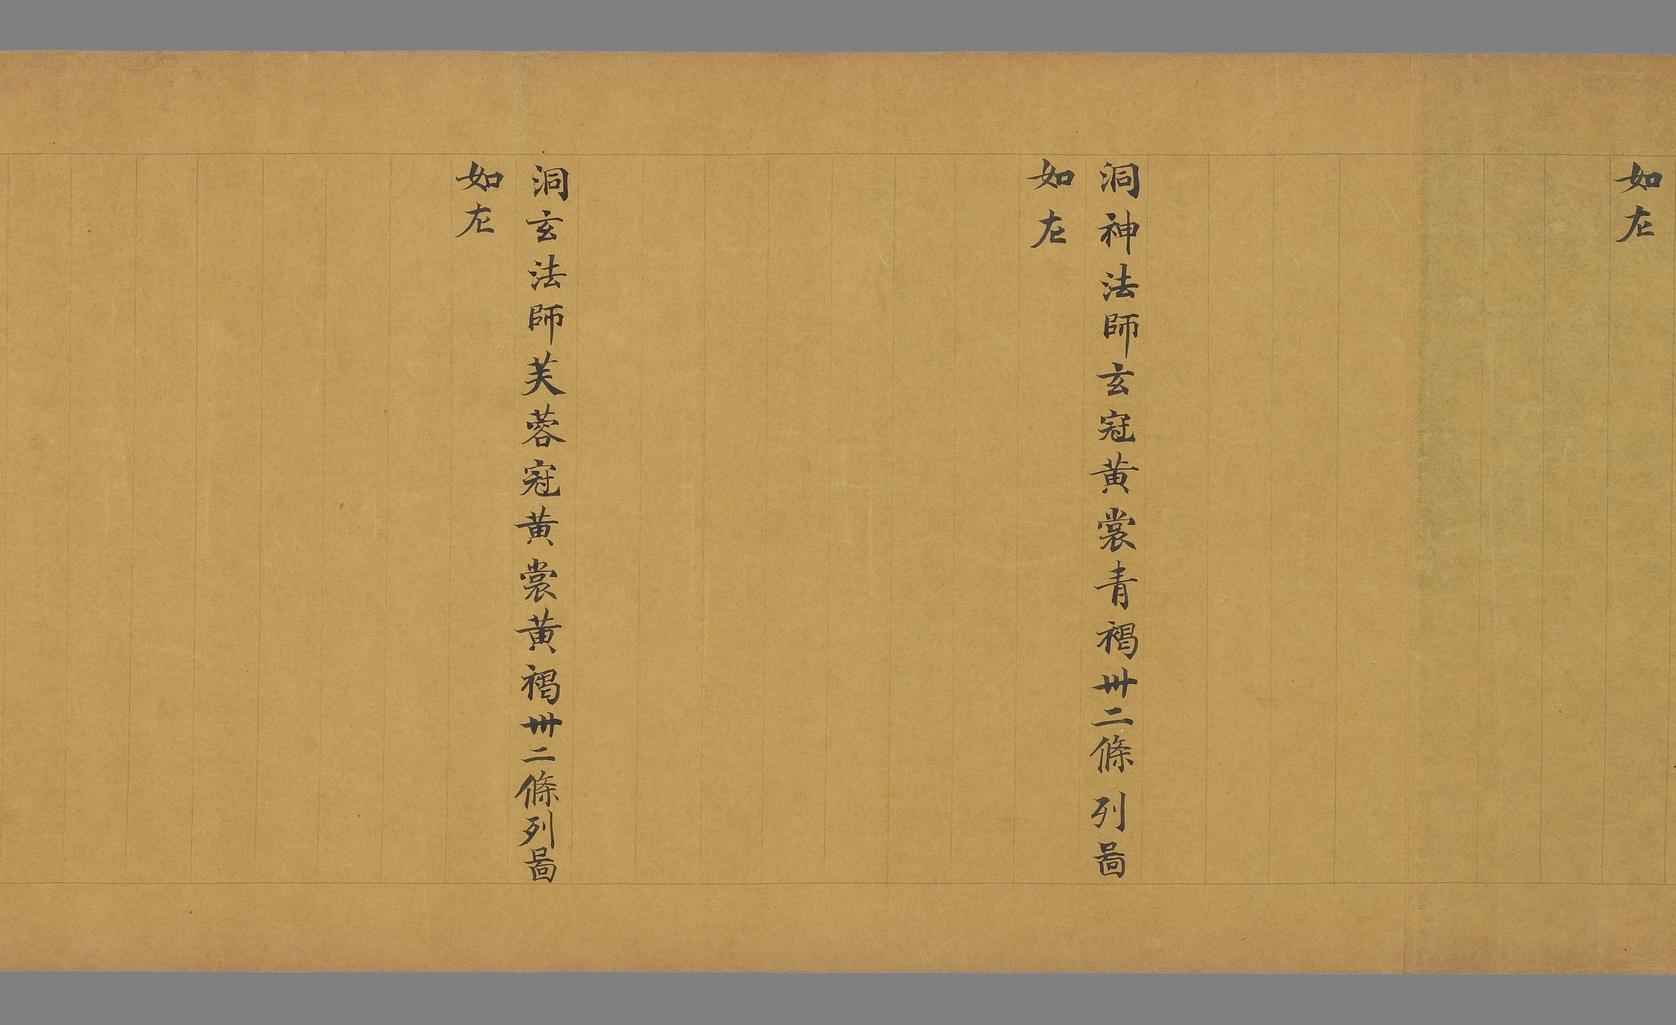 如左
洞神法師玄冠黃裳青褐卅二條列啚
如左
洞玄法師芙蓉冠黃裳黃褐卅二條列啚
如左